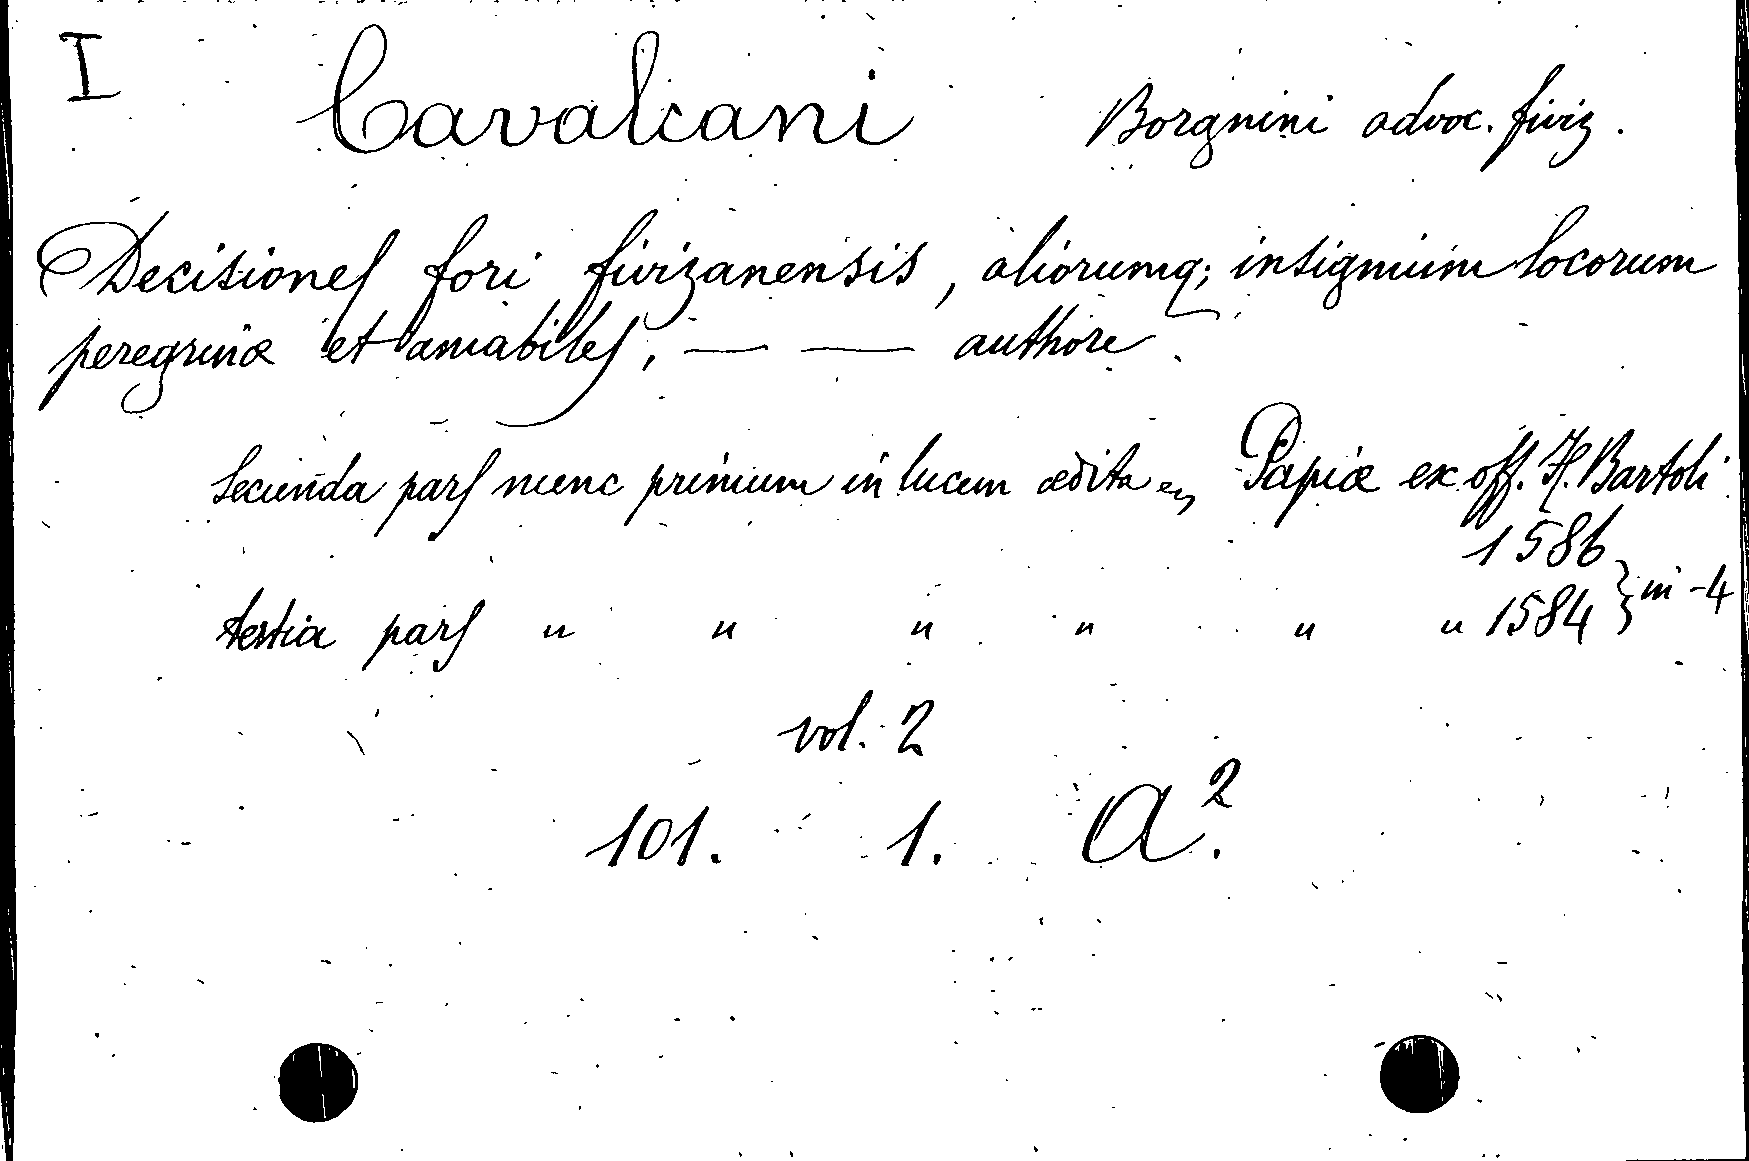 I Cavalcani Borgnini advoc. fiviz.
Decisiones fori fivizanensis, aliorumq; insignium locorum
peregrinæ et amabiles, — — authore.
Secunda pars nunc primum in lucem ædita Papiæ ex off. H. Bartoli
1586
tertia pars " " " " " " 1584 } in-4
vol. 2
101. 1. A².